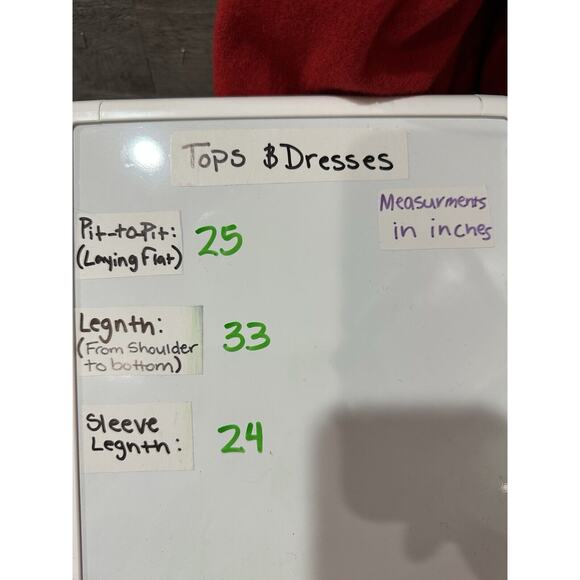 Tops & Dresses
Measurments
in inches
Pit-to-Pit:
(Laying Flat)
25
Legnth:
(From Shoulder
to bottom)
33
Sleeve
Legnth:
24